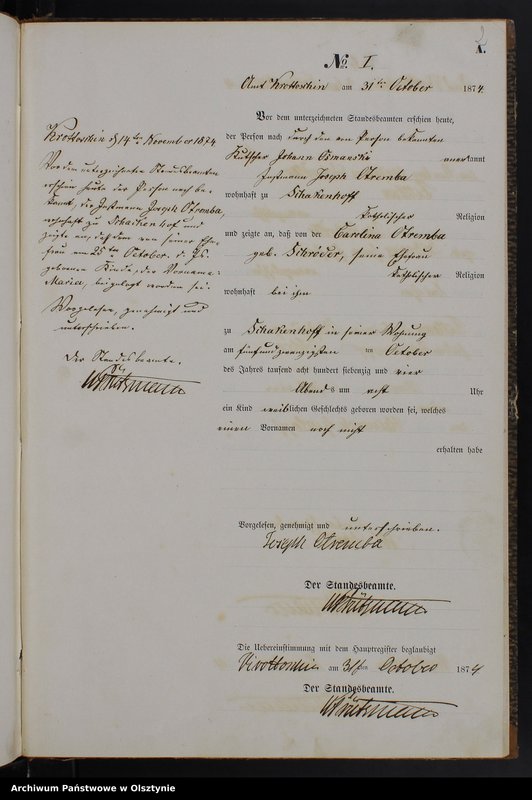 2
A.
No. I.
Amt Krottoschin am 31ten October 1874.
Vor dem unterzeichneten Standesbeamten erschien heute,
der Person nach durch den von Person bekannten
Kutscher Johann anerkannt
Instmann Joseph Otremba
wohnhaft zu Schakenhoff
katholischer Religion
und zeigte an, daß von der Carolina Otremba
geb. Schröder, seine Ehefrau
katholischer Religion
wohnhaft bei ihm
zu Schakenhoff in seiner Wohnung
am fünfundzwanzigsten ten October
des Jahres tausend acht hundert siebenzig und vier
Abends um acht Uhr
ein Kind weiblichen Geschlechts geboren worden sei, welches
einen Vornamen noch nicht
erhalten habe
Vorgelesen, genehmigt und unterschrieben.
Joseph Otremba
Der Standesbeamte.
Die Uebereinstimmung mit dem Hauptregister beglaubigt
Krottoschin am 31ten October 1874
Der Standesbeamte.
Krottoschin d 14ten November 1874
Vor dem unterzeichneten Standesbeamten
erschien heute der Person nach be-
kannt, der Instmann Joseph Otremba,
wohnhaft zu Schackenhof und
zeigte an, daß dem von seiner Ehe-
frau am 25ten October d. Js.
geborenen Kinde, der Vorname:
Maria, beigelegt worden sei.
Vorgelesen, genehmigt und
unterschrieben.
Der Standesbeamte.
Archiwum Państwowe w Olsztynie